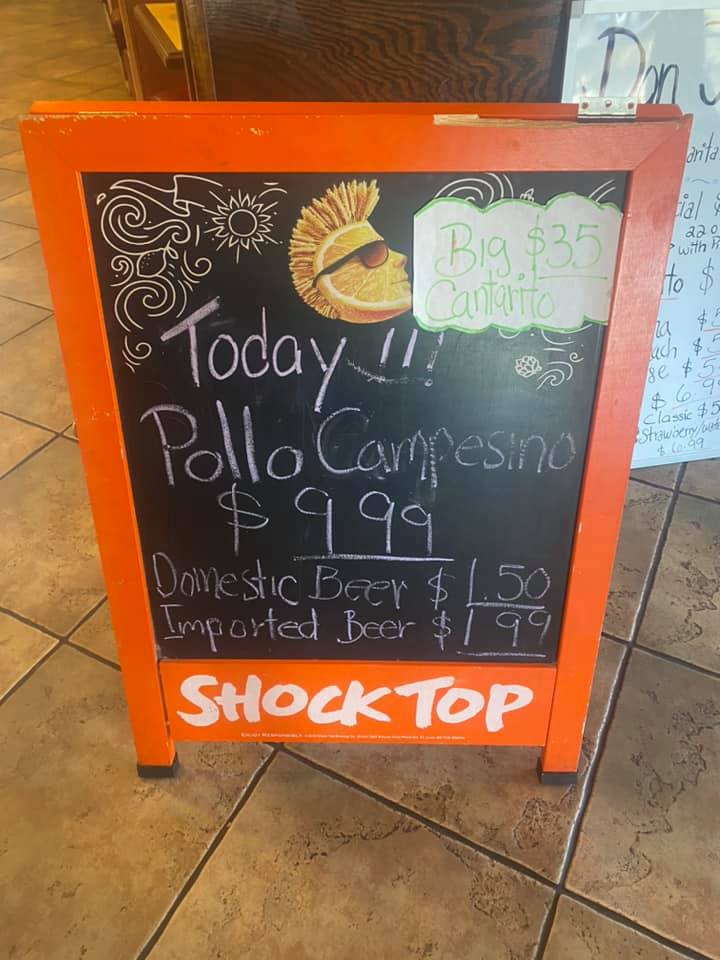 Big $35
Cantarito
Today !!!
Pollo Campesino
$ 9 99
Domestic Beer $ 1.50
Imported Beer $ 1 99
SHOCK TOP
ENJOY RESPONSIBLY
Don
with
to $
$
$ 5
ge $ 5
$ 6.9
Classic $5
Strawberry/
$ 6.99